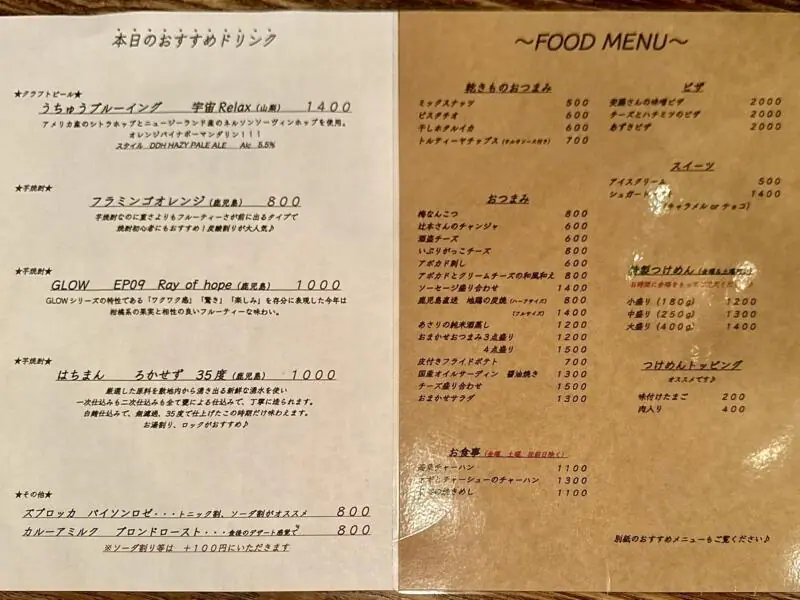 本日のおすすめドリンク
★クラフトビール★
うちゅうブルーイング 宇宙Relax(山梨) 1400
アメリカ産のシトラホップとニュージーランド産のネルソンソーヴィンホップを使用。
オレンジパイナポーマンダリン！！！
スタイル DDH HAZY PALE ALE Alc 5.5%
★芋焼酎★
フラミンゴオレンジ(鹿児島) 800
芋焼酎なのに重さよりもフルーティーさが前に出るタイプで
焼酎初心者にもおすすめ！炭酸割りが大人気♪
★芋焼酎★
GLOW EP09 Ray of hope(鹿児島) 1000
GLOWシリーズの特性である「ワクワク感」「驚き」「楽しみ」を存分に表現した今年は
柑橘系の果実と相性の良いフルーティーな味わい。
★芋焼酎★
はちまん ろかせず 35度(鹿児島) 1000
厳選した原料を敷地内から湧き出る新鮮な湧水を使い
一次仕込みも二次仕込みも全て甕による仕込みで、丁寧に造られます。
白麹仕込みで、無濾過、35度で仕上げたこの時期だけ味わえます。
お湯割り、ロックがおすすめ♪
★その他★
ズブロッカ バイソンロゼ・・・トニック割、ソーダ割がオススメ 800
カルーアミルク ブロンドロースト・・・食後のデザート感覚で 800
※ソーダ割り等は +100円にいただきます
～FOOD MENU～
乾きものおつまみ
ミックスナッツ 500
ピスタチオ 600
干しホタルイカ 600
トルティーヤチップス(サルサソース付き) 700
おつまみ
梅なんこつ 800
辻本さんのチャンジャ 600
酒盗チーズ 600
いぶりがっこチーズ 800
アボカド刺し 600
アボカドとクリームチーズの和風和え 800
ソーセージ盛り合わせ 1400
鹿児島直送 地鶏の炭焼(ハーフサイズ) 800
(フルサイズ) 1400
あさりの純米酒蒸し 1200
おまかせおつまみ3点盛り 1200
4点盛り 1500
皮付きフライドポテト 700
国産オイルサーディン 醤油焼き 1300
チーズ盛り合わせ 1500
おまかせサラダ 1300
お食事(金曜、土曜、祝前日除く)
チャーハン 1100
ネギとチャーシューのチャーハン 1300
焼きめし 1100
ピザ
安藤さんの味噌ピザ 2000
チーズとハチミツのピザ 2000
あずきピザ 2000
スイーツ
アイスクリーム 500
シュガー 1400
(キャラメル or チョコ)
特製つけめん(金曜&土曜
お時間に余裕をもってご注文ください
小盛り(180g) 1200
中盛り(250g) 1300
大盛り(400g) 1400
つけめんトッピング
オススメです♪
味付けたまご 200
肉入り 400
別紙のおすすめメニューもご覧ください♪